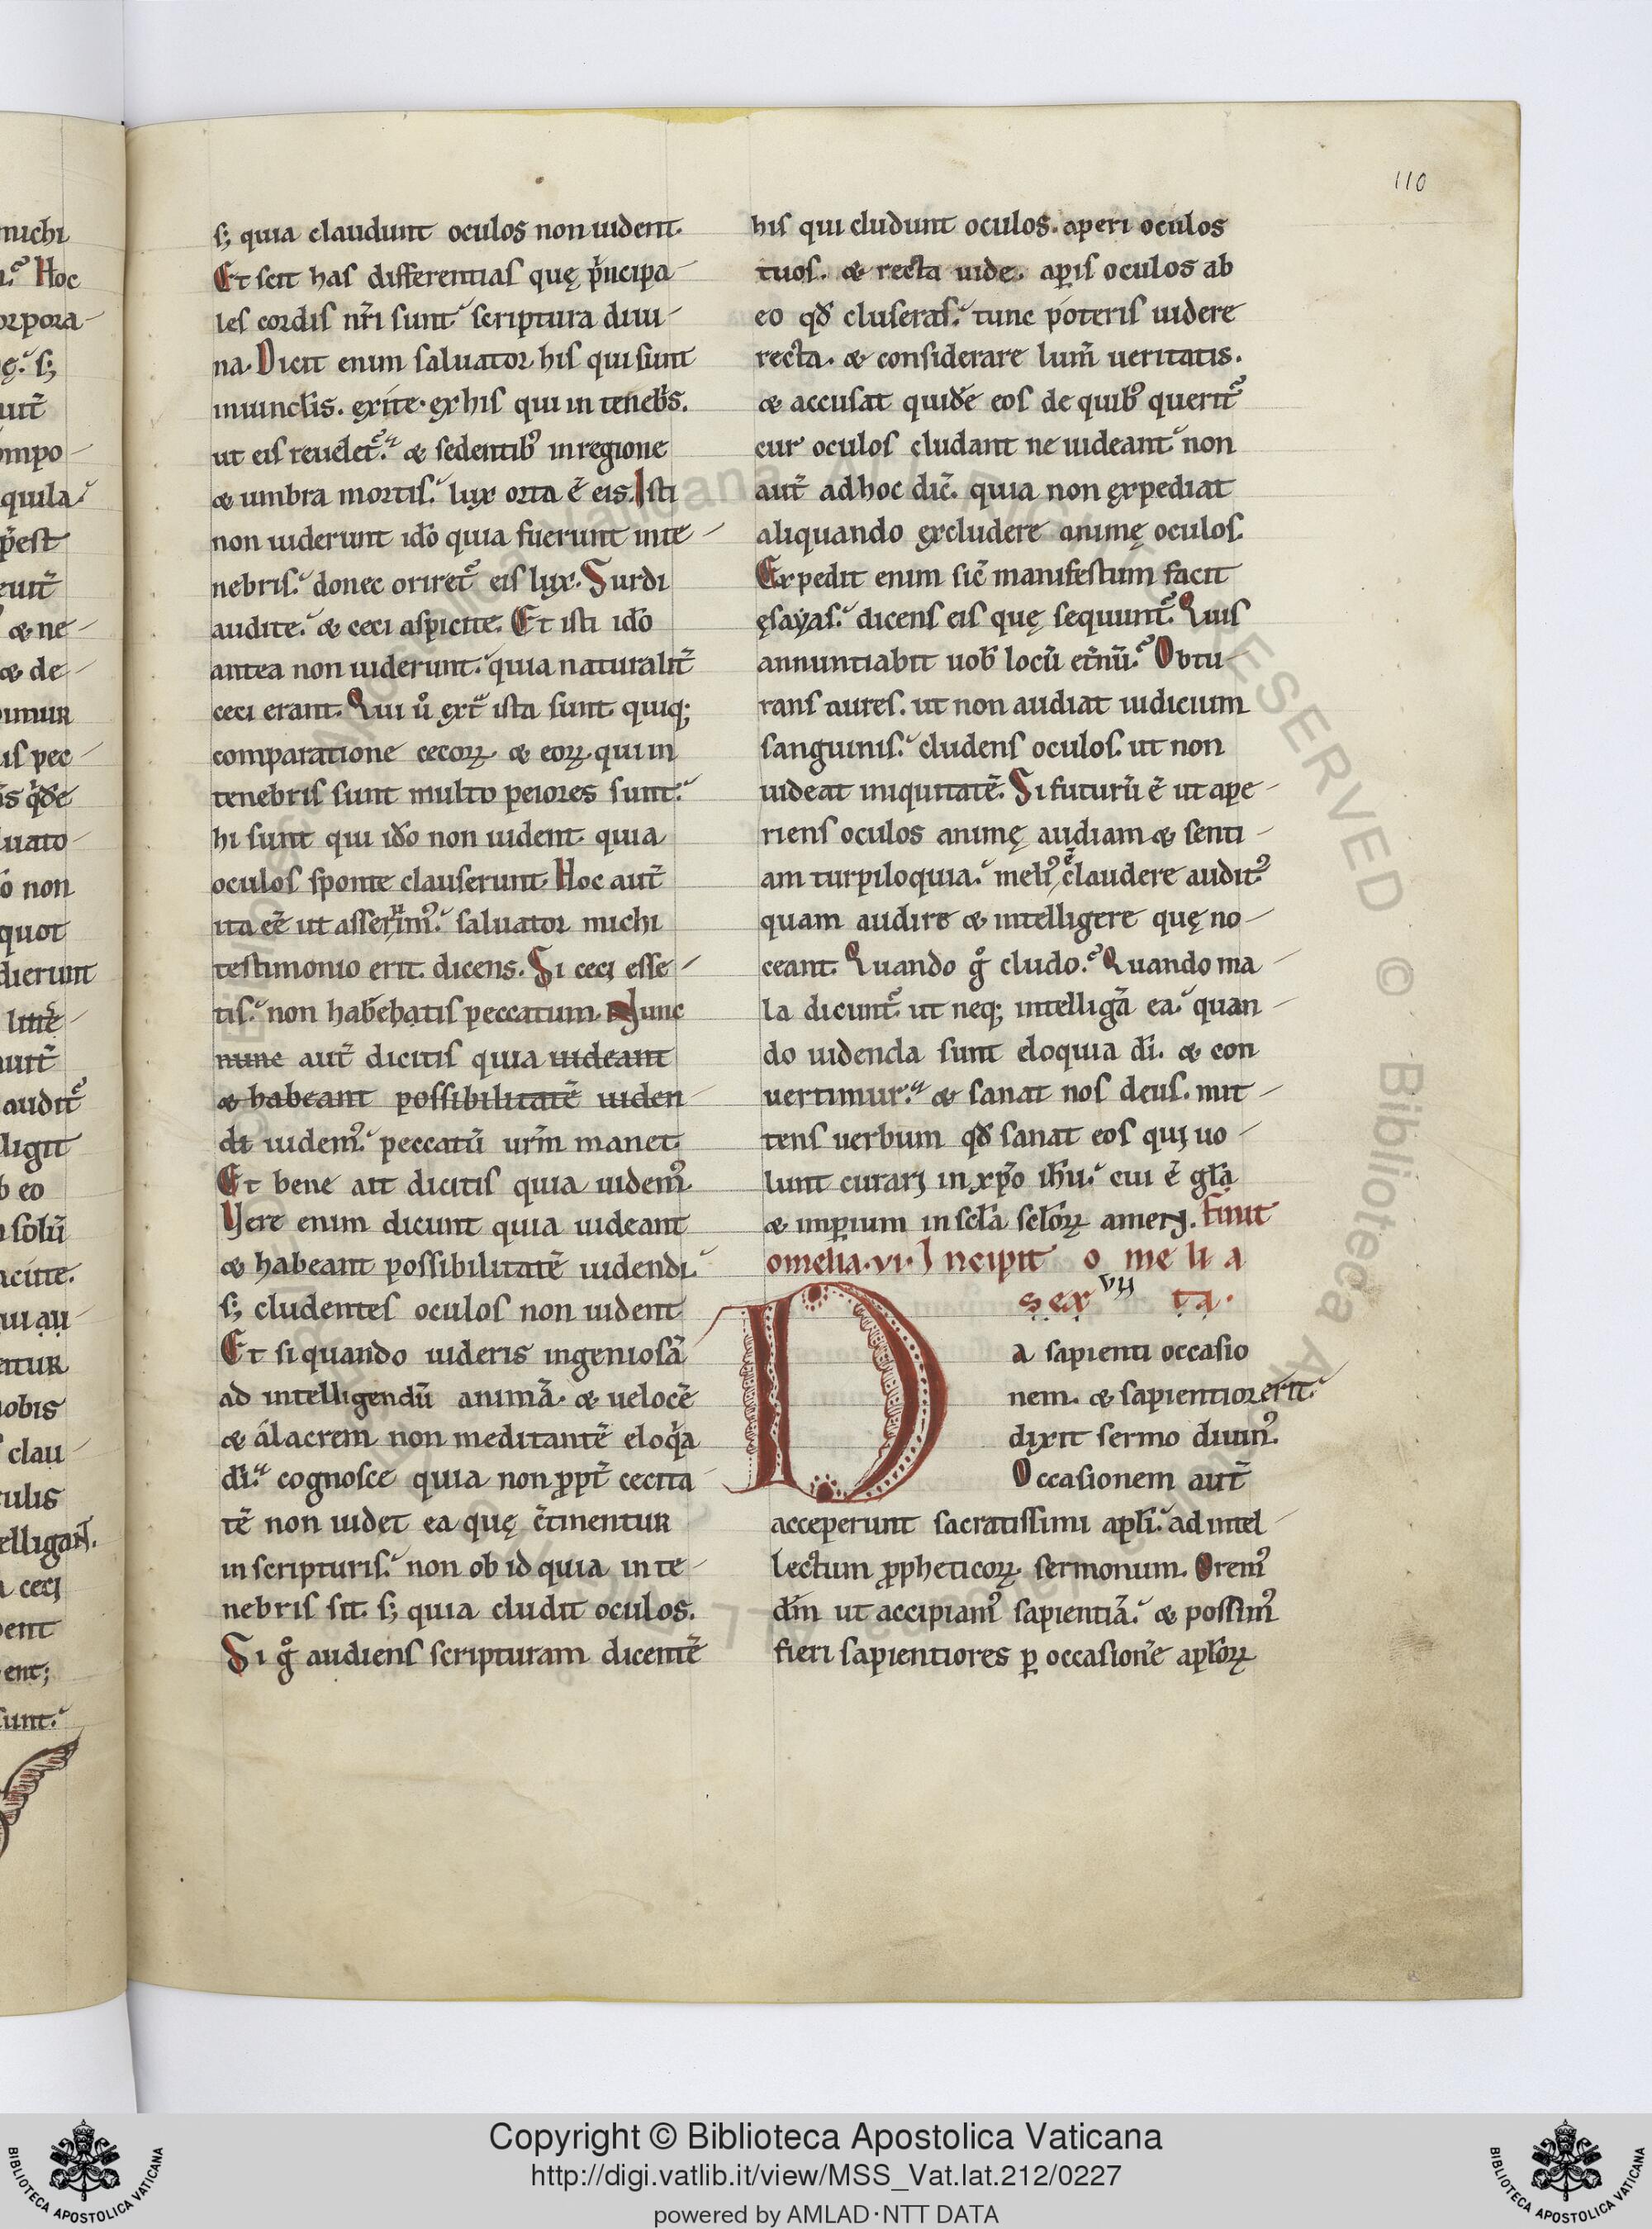 110
s; quia claudunt oculos non uident.
Et scit has differentias quę p̄ncipa-
les cordis nr̄i sunt scriptura diui-
na. Dicit enim saluator his qui sunt
inuinclis. exite. ex his qui in tenebr̄s.
ut eis reuelet᷒. & sedentib᷒ inregione
& umbra mortis. lux orta ē eis. Isti
non uiderunt idō quia fuerunt inte-
nebris. donec oriret᷒ eis lux. Surdi
audite. & ceci aspicite. Et isti idō
antea non uiderunt. quia naturalit̄
ceci erant. Qui uͦ ext̄ ista sunt. quiq;
comparatione cecoꝝ & eoꝝ qui in
tenebris sunt multo peiores sunt.
hi sunt qui idō non uident. quia
oculos sponte clauserunt. Hoc aut̄
ita eē ut asserim᷒. saluator michi
testimonio erit. dicens. Si ceci esse-
tis. non habebatis peccatum. Nunc
nunc aut̄ dicitis quia uideant
& habeant possibilitatē uiden-
di uidem᷒. peccatū urm̄ manet.
Et bene ait dicitis quia uidem᷒.
Vere enim dicunt quia uideant
& habeant possibilitatē uidendi.
s; cludentes oculos non uident
Et si quando uideris ingeniosā
ad intelligendū animā. & uelocē
& álacrem non meditantē eloq̄a
dī. cognosce quia non ꝓpt̄ cecita-
tē non uidet ea quę c̄tinentur
in scripturis. non ob id quia in te-
nebris sit. s; quia cludit oculos.
Si gͦ audiens scripturam dicentē
his qui cludunt oculos. aperi oculos
tuos. & recta uide. aꝑis oculos ab
eo qđ cluseras. tunc póteris uidere
recta. & considerare lum̄ ueritatis.
& accusat quidē eos de quib᷒ querit᷒
cur oculos cludant ne uideant. non
aut̄ adhoc dic̄. quia non expediat
aliquando excludere animę oculos.
Expedit enim sic̄ manifestum facit
ęsayas. dicens eis quę sequunt᷒. Quis
annuntiabit uob̄ locū et̄nū. Obtu-
rans aures. ut non audiat iudicium
sanguinis. cludens oculos. ut non
uideat iniquitatē. Si futurū ē ut ape-
riens oculos animę audiam & senti-
am turpiloquia. meli᷒ ē claudere audit᷒
quam audire & intelligere quę no-
ceant. Quando gͦ cludo. Quando ma-
la dicunt᷒ ut neq; intelligā ea. quan-
do uidenda sunt eloquia dī. & con
uertimur. & sanat nos deus. mit-
tens uerbum qđ sanat eos qui uo-
lunt curari in xp̄o ihū. cui ē gla̅
& imꝑium in scl̄a scl̄oꝝ amen. Finit
omelia.vi. Incipit omelia
sex vij ta.
Da sapienti occasio
nem. & sapientior erit.
dixit sermo diuin᷒.
Occasionem aut̄
acceperunt sacratissimi apl̄i. ad intel-
lectum ꝓpheticoꝝ sermonum. Orem᷒
dm̄ ut accipiam᷒ sapientiā. & possim᷒
fieri sapientiores ꝑ occasionē apl̄oꝝ
Copyright © Biblioteca Apostolica Vaticana
http://digi.vatlib.it/view/MSS_Vat.lat.212/0227
powered by AMLAD·NTT DATA